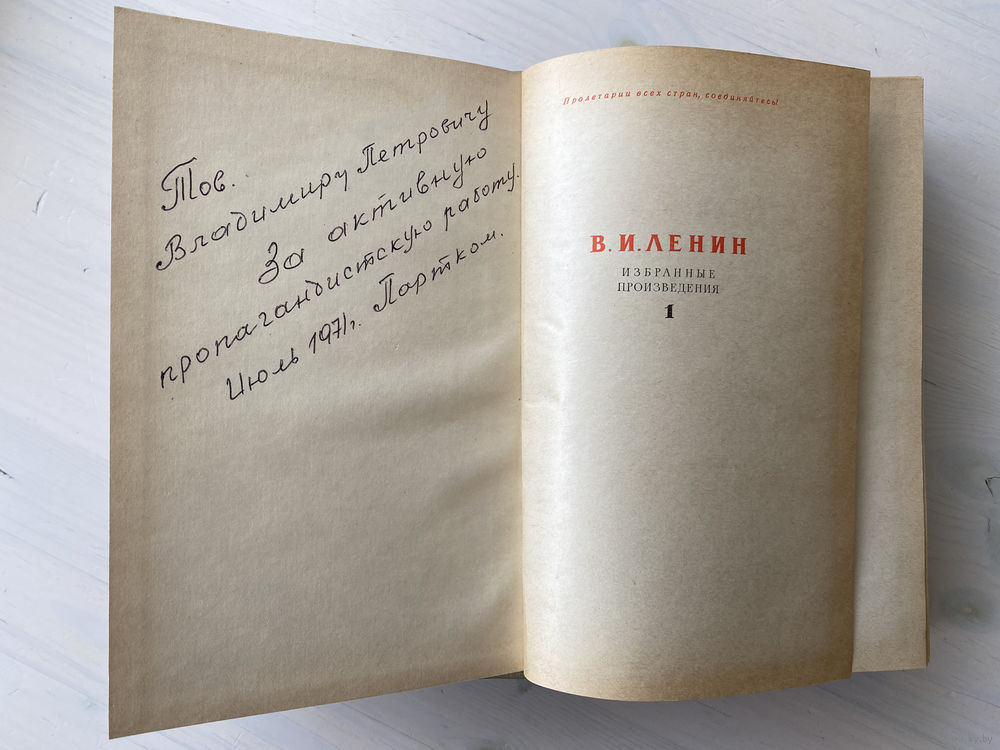 Тов.
Владимиру Петровичу
За активную
пропагандистскую работу.
Июль 1971г. Партком.
Пролетарии всех стран, соединяйтесь!
В. И. ЛЕНИН
ИЗБРАННЫЕ
ПРОИЗВЕДЕНИЯ
1